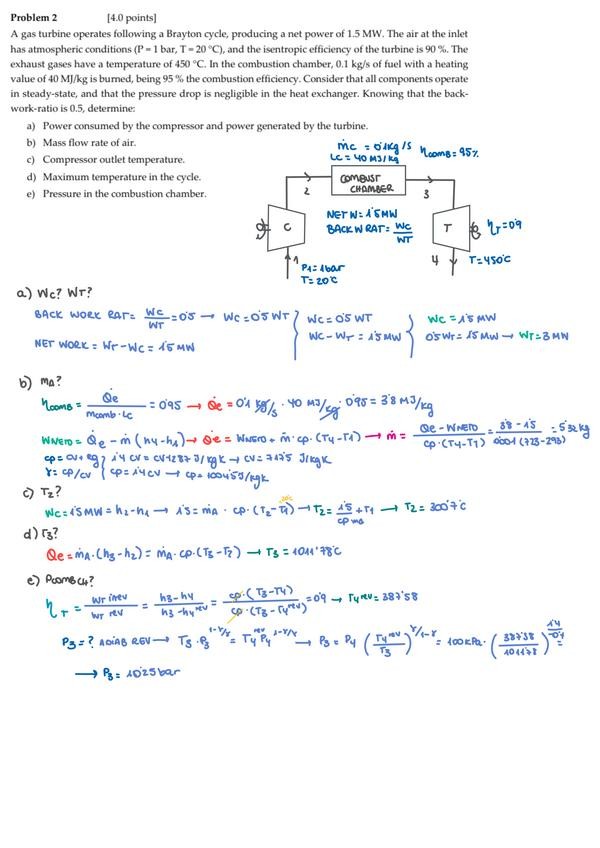 Problem 2 [4.0 points]
A gas turbine operates following a Brayton cycle, producing a net power of 1.5 MW. The air at the inlet
has atmospheric conditions (P = 1 bar, T = 20 °C), and the isentropic efficiency of the turbine is 90 %. The
exhaust gases have a temperature of 450 °C. In the combustion chamber, 0.1 kg/s of fuel with a heating
value of 40 MJ/kg is burned, being 95 % the combustion efficiency. Consider that all components operate
in steady-state, and that the pressure drop is negligible in the heat exchanger. Knowing that the back-
work-ratio is 0.5, determine:
a) Power consumed by the compressor and power generated by the turbine.
b) Mass flow rate of air.
c) Compressor outlet temperature.
d) Maximum temperature in the cycle.
e) Pressure in the combustion chamber.
ṁc = 0'1 kg/s
LC = 40 MJ/kg
ηCOMB = 95%
COMBUST
CHAMBER
2
3
C
T
NET W = 1'5 MW
BACK W RAT = Wc/WT
ηT = 0'9
1
P1 = 1bar
T = 20°C
4
T = 450°C
a) Wc? WT?
BACK WORK RAT = Wc/WT = 0'5 → Wc = 0'5 WT } Wc = 0'5 WT } Wc = 1'5 MW
NET WORK = WT - Wc = 1'5 MW } Wc - WT = 1'5 MW } 0'5 WT = 1'5 MW → WT = 3 MW
b) ṁA?
ηCOMB = Q̇e / ṁcomb · LC = 0'95 → Q̇e = 0'1 kg/s · 40 MJ/kg · 0'95 = 3'8 MJ/kg
WNETO = Q̇e - ṁ (h4-h1) → Q̇e = WNETO + ṁ · cp · (T4-T1) → ṁ = Qe - WNETO / cp · (T4-T1) = 3'8 - 1'5 / 0'001 (723-293) = 5'32 kg
cp = cv + Rg } 1'4 cv = cv + 287 J/kgK → cv = 717'5 J/kgK
γ = cp/cv } cp = 1'4 cv → cp = 1004'5 J/kgK
c) T2?
Wc = 1'5 MW = h2-h1 → 1'5 = ṁA · cp · (T2 - T1) → T2 = 1'5 / cp ṁA + T1 → T2 = 300'7°C
20°C
d) T3?
Qe = ṁA · (h3-h2) = ṁA · cp · (T3-T2) → T3 = 1011'78°C
e) PCOMB CH?
ηT = WT irrev / WT rev = h3-h4 / h3-h4rev = cp · (T3-T4) / cp · (T3-T4rev) = 0'9 → T4rev = 387'58
P3 = ? ADIAB REV → T3 · P3^1-γ/γ = T4rev P4^1-γ/γ → P3 = P4 (T4rev / T3)^γ/1-γ = 100 kPa · (387'58 / 1011'78)^1'4/-0'4
→ P3 = 10'25 bar